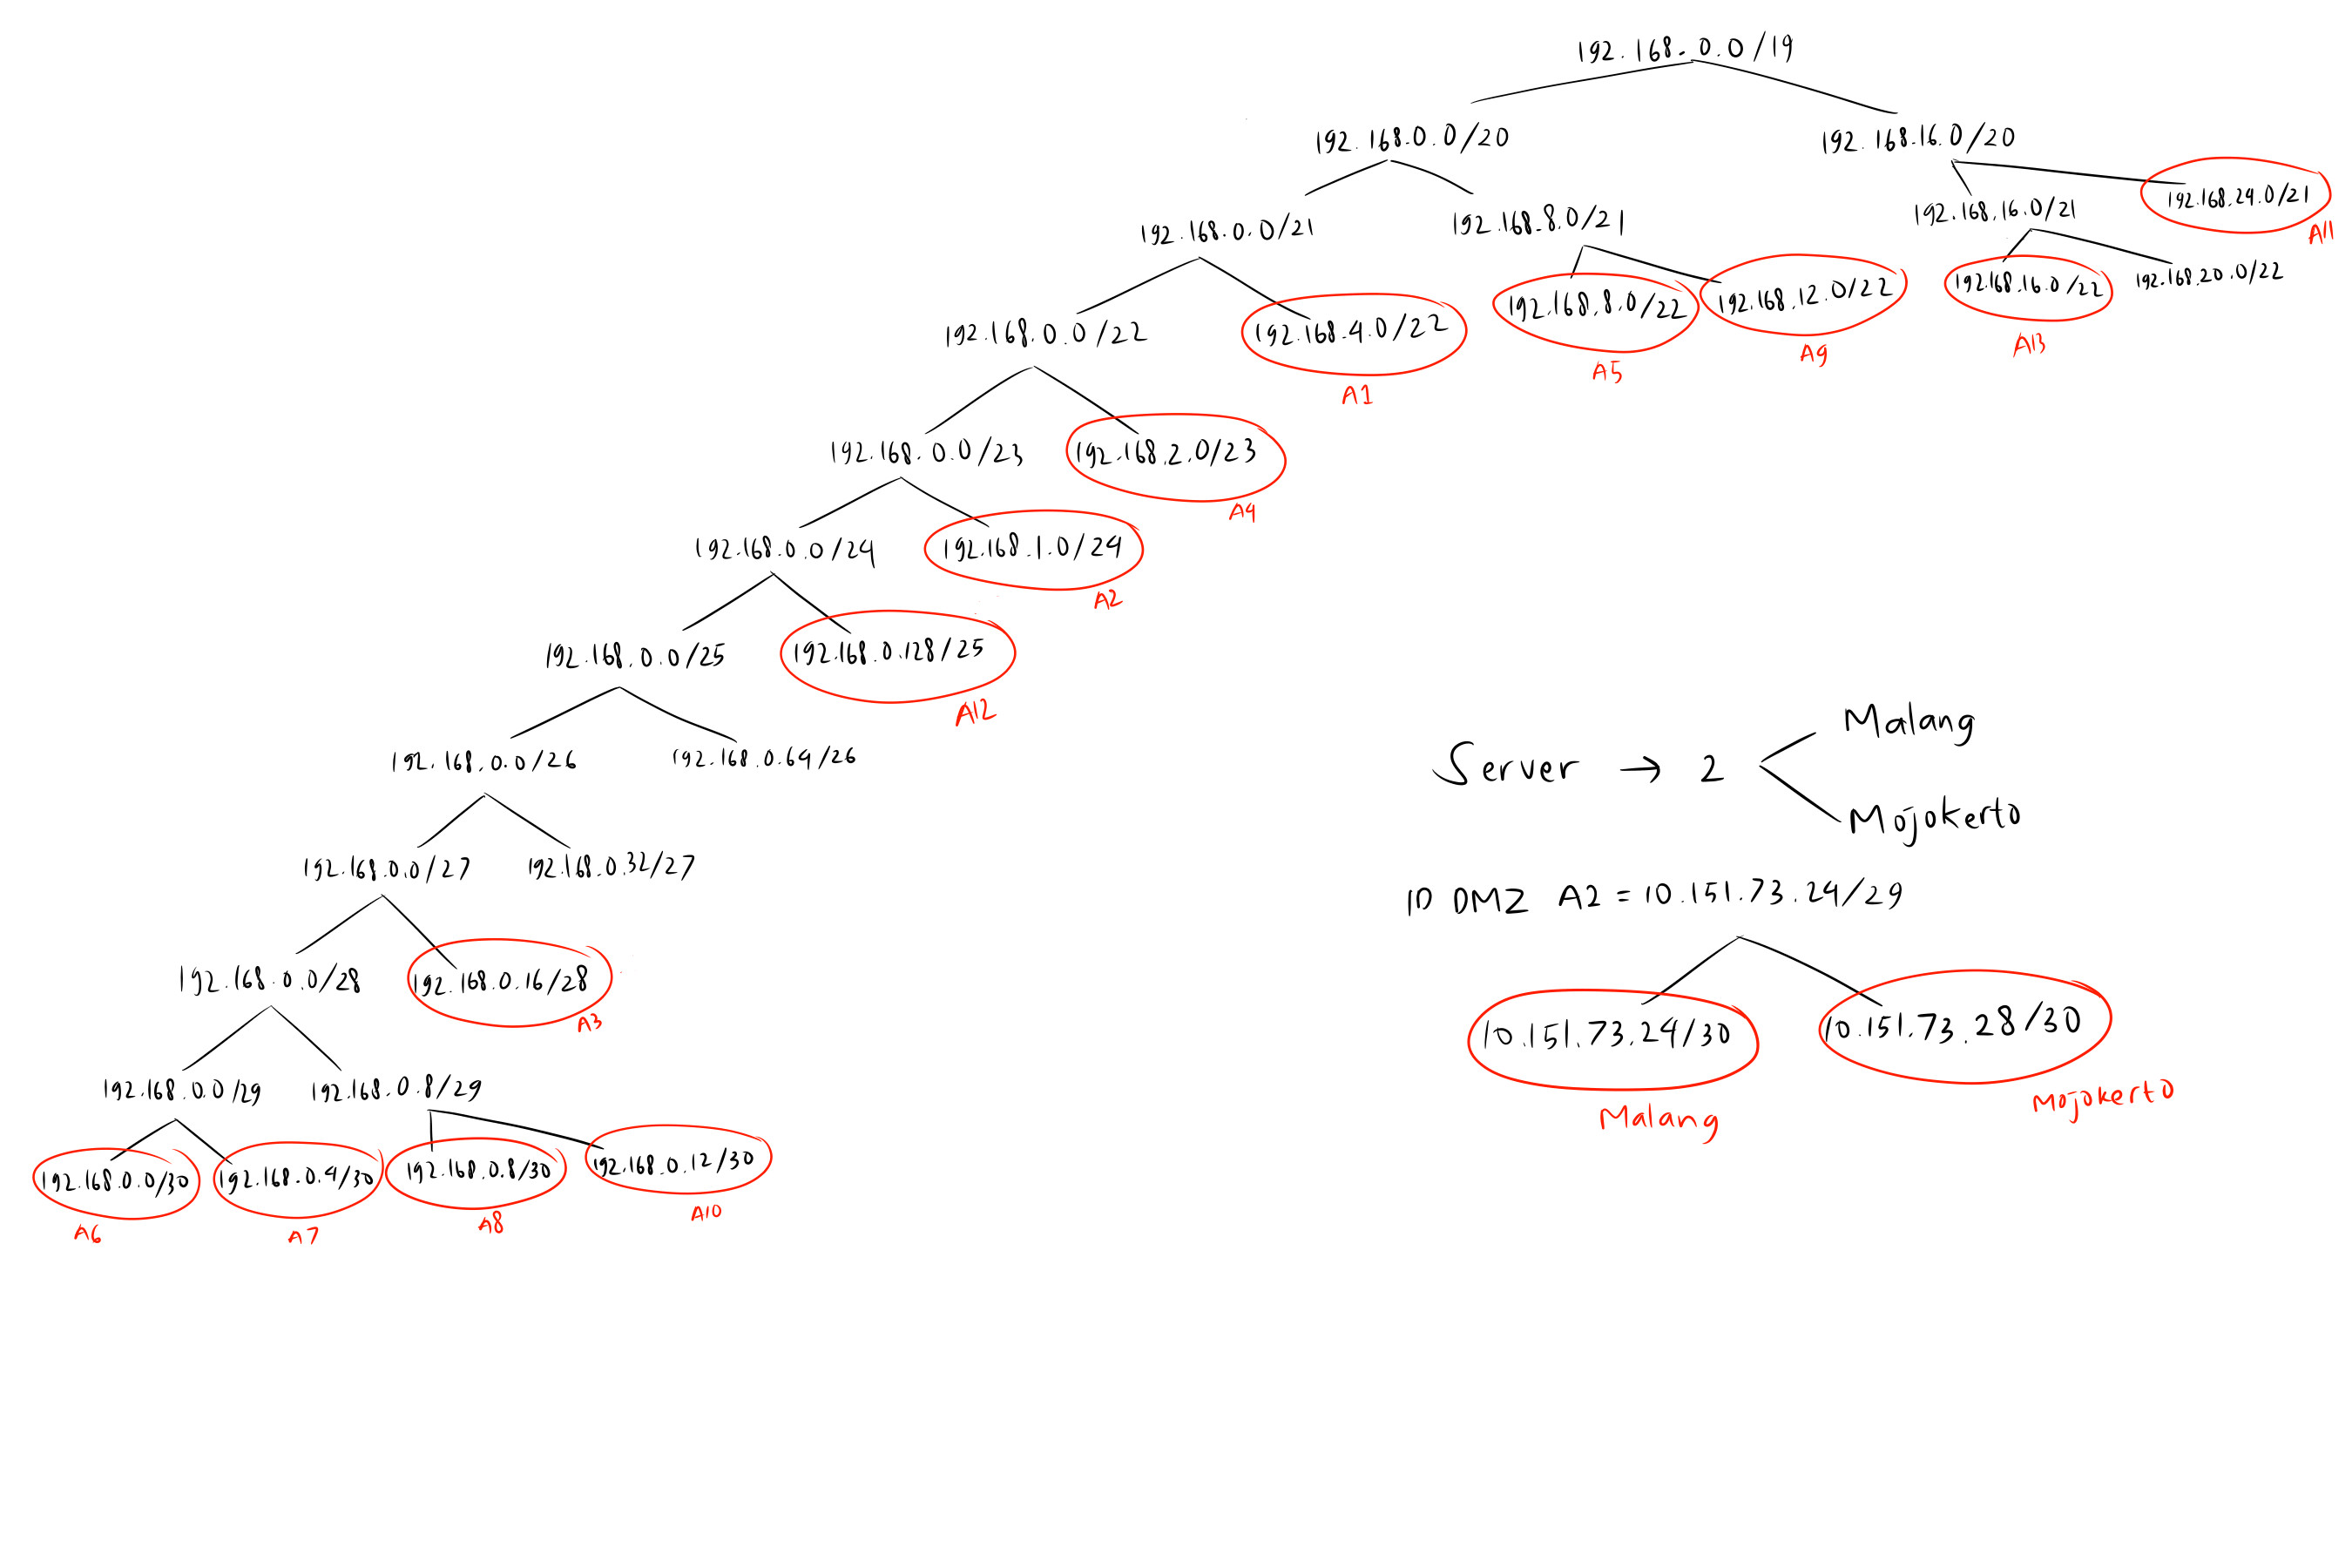 192.168.0.0/19
192.168.0.0/20
192.168.16.0/20
192.168.24.0/21
A11
192.168.0.0/21
192.168.8.0/21
192.168.16.0/21
192.168.8.0/22
A5
192.168.12.0/22
A9
192.168.16.0/22
A13
192.168.20.0/22
192.168.0.0/22
192.168.4.0/22
A1
192.168.0.0/23
192.168.2.0/23
A4
192.168.0.0/24
192.168.1.0/24
A2
192.168.0.0/25
192.168.0.128/25
A12
192.168.0.0/26
192.168.0.64/26
192.168.0.0/27
192.168.0.32/27
192.168.0.0/28
192.168.0.16/28
A3
192.168.0.0/29
192.168.0.8/29
192.168.0.0/30
A6
192.168.0.4/30
A7
192.168.0.8/30
A8
192.168.0.12/30
A10
Server → 2
Malang
Mojokerto
ID DMZ A2 = 10.151.73.24/29
10.151.73.24/30
Malang
10.151.73.28/30
Mojokerto